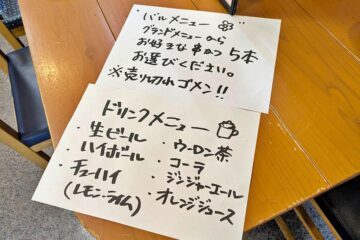 "バルメニュー"
グランドメニューから
お好きな串のつ5本
お選びください。
※売り切れゴメン!!
ドリンクメニュー
・生ビール
・ハイボール
・チューハイ
(レモン・ライム)
・ウーロン茶
・コーラ
・ジンジャーエール
・オレンジジュース